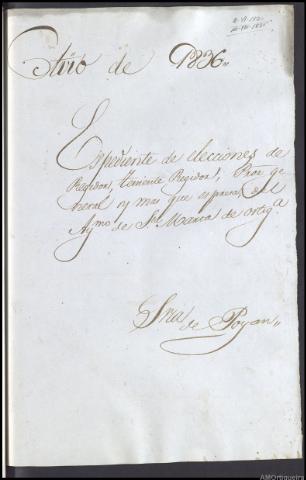 Año de 1836,,
Expediente de elecciones de
Regidor, teniente Regidor, Pror. ge
neral y mas que expresa, del
Aymo de Sta Marta de Ortiga
Sria de Poyan,,
AMOrtigueira